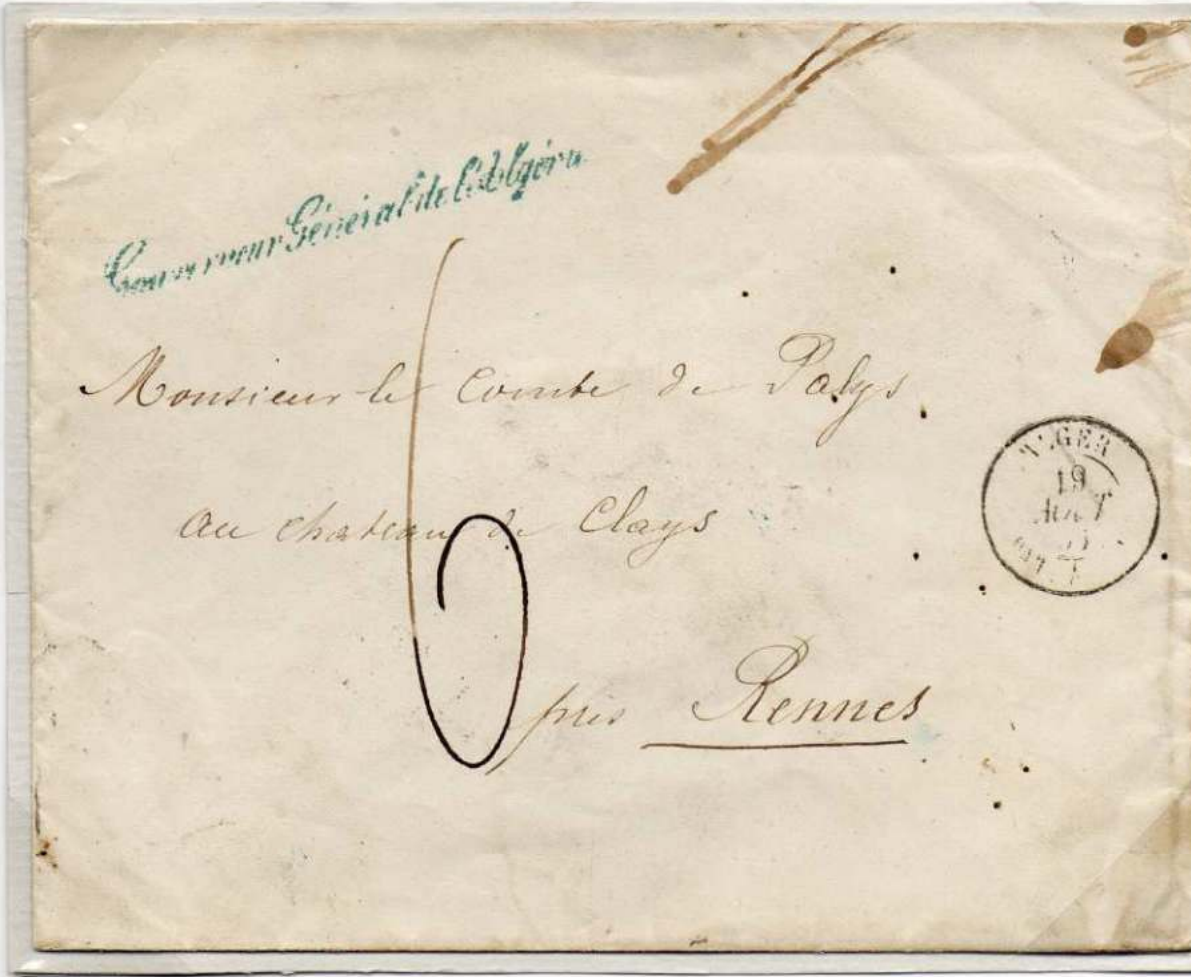 Gouverneur Général de l'Algérie
Monsieur le Comte de Palys
au chateau de Clays
près Rennes
6
ALGER
19
AOUT